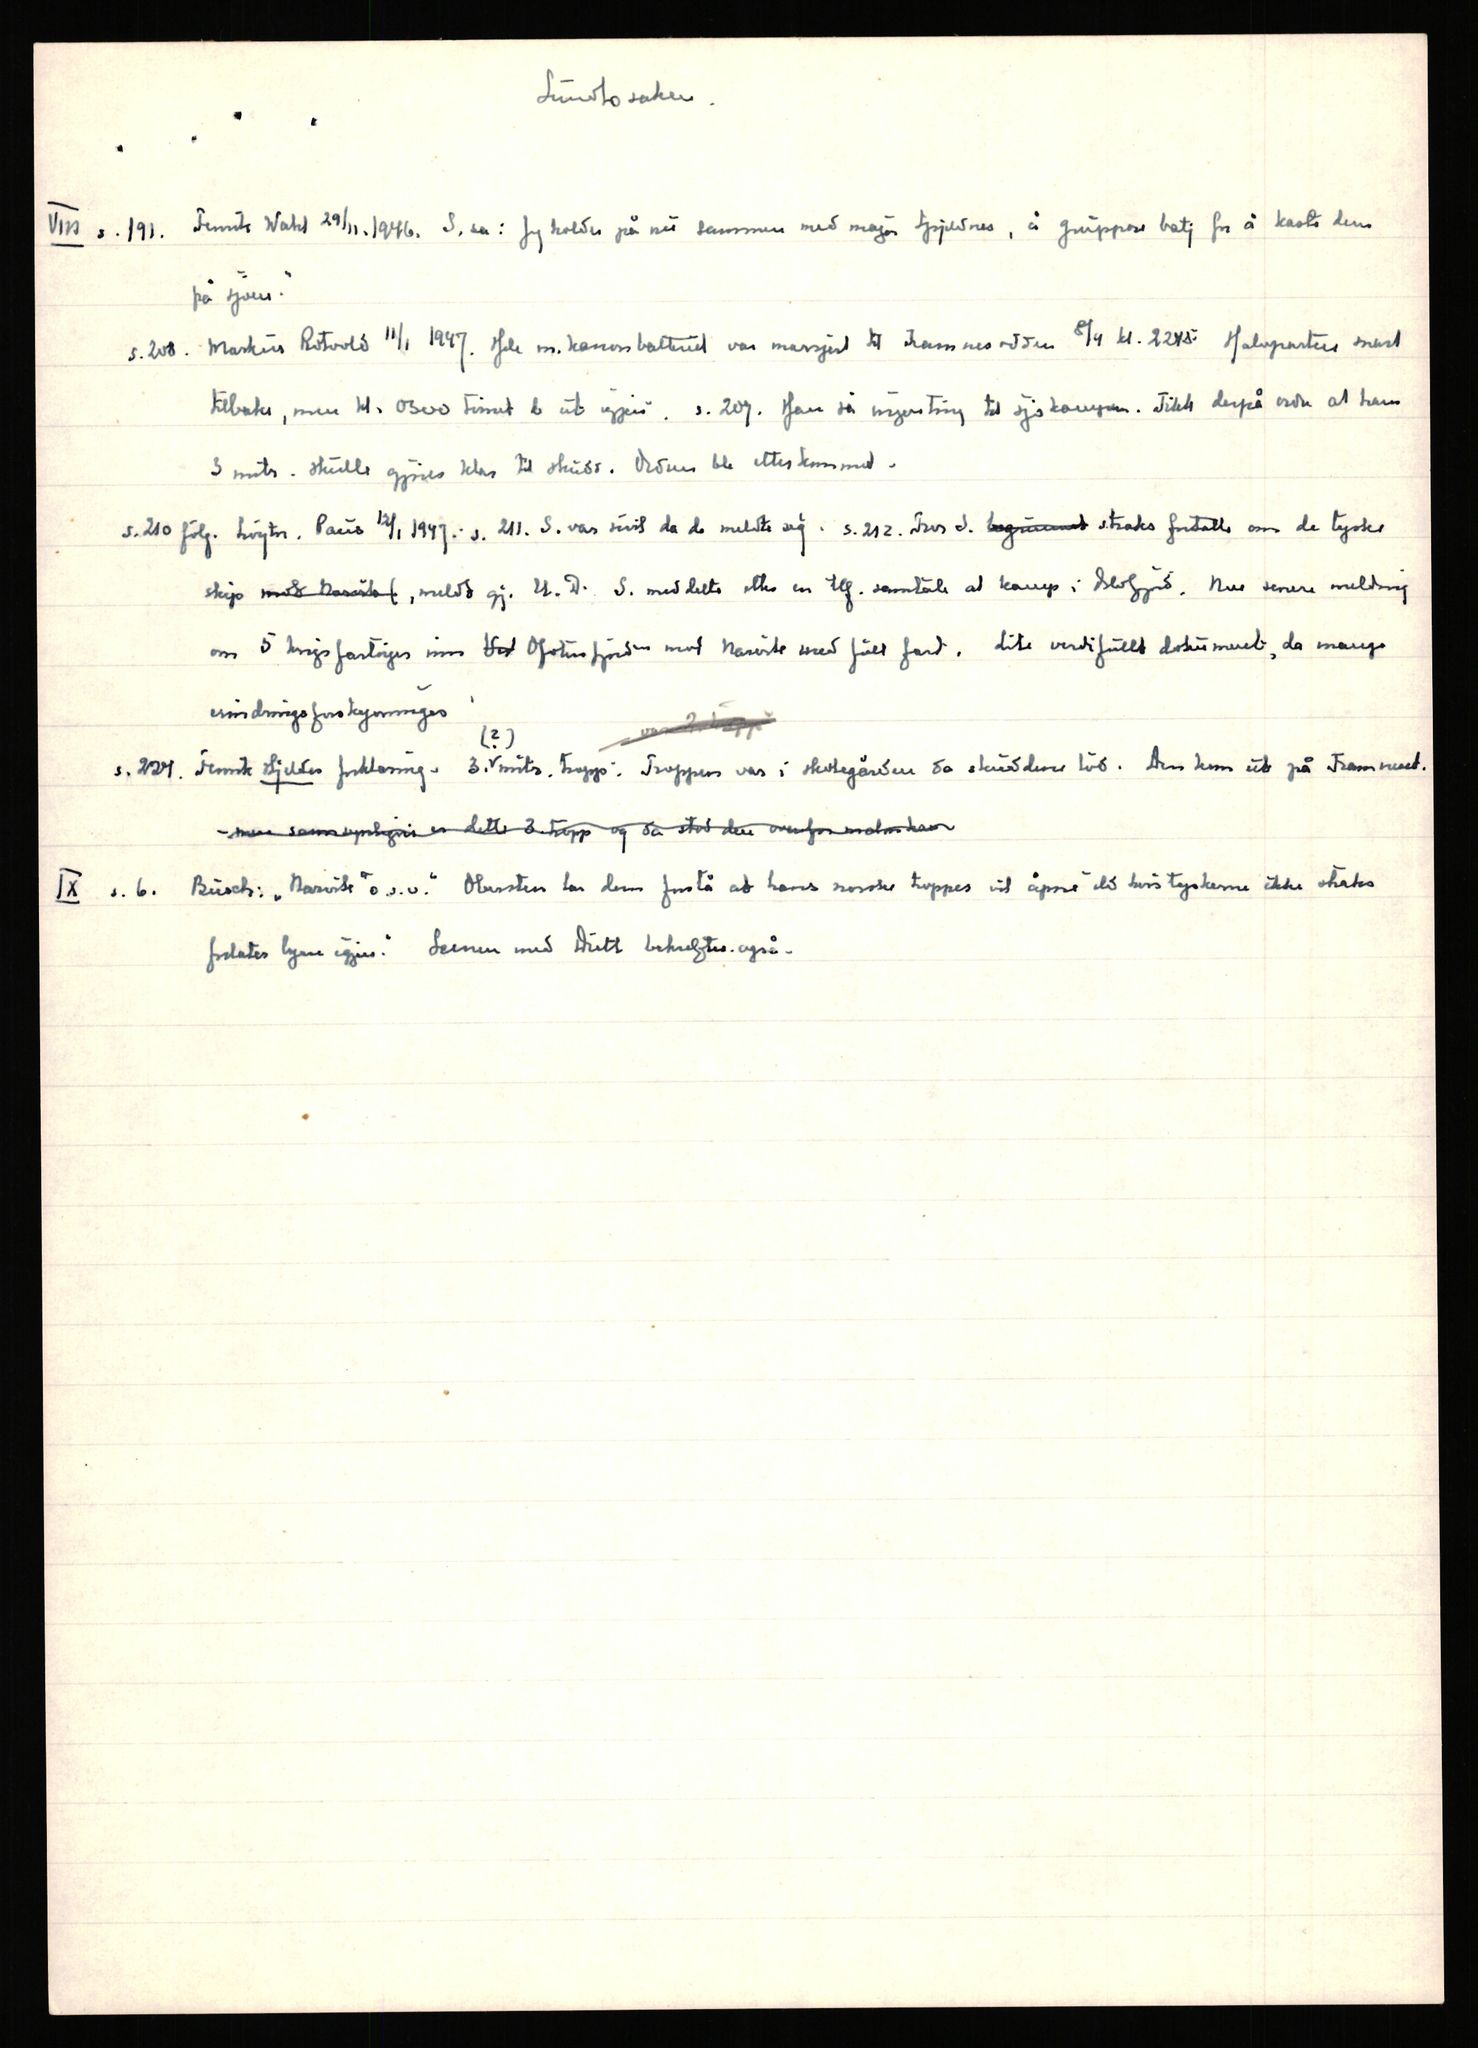 Sundlosaken.
VIII s. 191. Fenrik Wahl 29/11. 1946. S. sa: Jeg holder på nu sammen med major Spjeldnes, å gruppere batj for å kaste dem
på sjøen."
s. 208. Markus Rotvold 11/1 1947. Hele m.kanonbatteriet var marsjert til Framnesodden 8/4 kl. 2245. Halvparten snart
tilbake, men kl. 0300 timet de ut igjen. s. 209. Han så ingenting til sjøkampen. Fikk derpå ordre at hans
3 mitr. skulle gjøres klar til skudd. Ordren ble etterkommet.
s. 210 følg. Løytn. Paus 12/1 1947. s. 211. S. var sivil da de meldte seg. s. 212. Tror S. begrunnet straks fortalte om de tyske
skip mot Narvik, meldt gj. U.D. S. meddelte etter en tlf. samtale at kamp i Oslofjord. Noe senere melding
om 5 krigsfartøyer inn Ofotenfjorden mot Narvik med full fart. Lite verdifullt dokument, da mange
erindringsforskyvninger
(?)
var 2. tropp
s. 224. Fenrik Hjeldes forklaring. 3. mitr. tropp. Troppen var i skolegården da skuddene lød. Den kom ut på Framneset.
- men sannsynligvis er dette 3. tropp og da stod den ovenfor malmkaien
IX s. 6. Busch: "Narvik" o.s.v." Obersten lar dem forstå at hans norske tropper vil åpne ild hvis tyskerne ikke straks
forlater byen igjen." Scenen med Dietl bekreftes også.